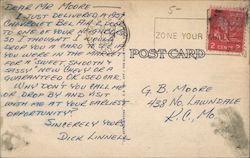 DEAR MR MOORE
I JUST DELIVERED A HOT
CHEVROLET BEL AIR
TO ONE OF YOUR NEIGHBORS
SO I THOUGHT I WOULD
DROP YOU A CARD TO SEE IF
YOU WERE IN THE MARKET
FOR A "SWEET SMOOTH &
SASSY" NEW CHEVY OR A
GUARANTEED OK USED ONE.
WHY DON'T YOU CALL ME
OR DROP BY AND VISIT
WITH ME AT YOUR EARLIEST
OPPORTUNITY?
SINCERELY YOURS
DICK LINNELL
5-
ZONE YOUR
2 CENTS
POST CARD
G. B. MOORE
438 NO. LAWNDALE
K.C. MO.